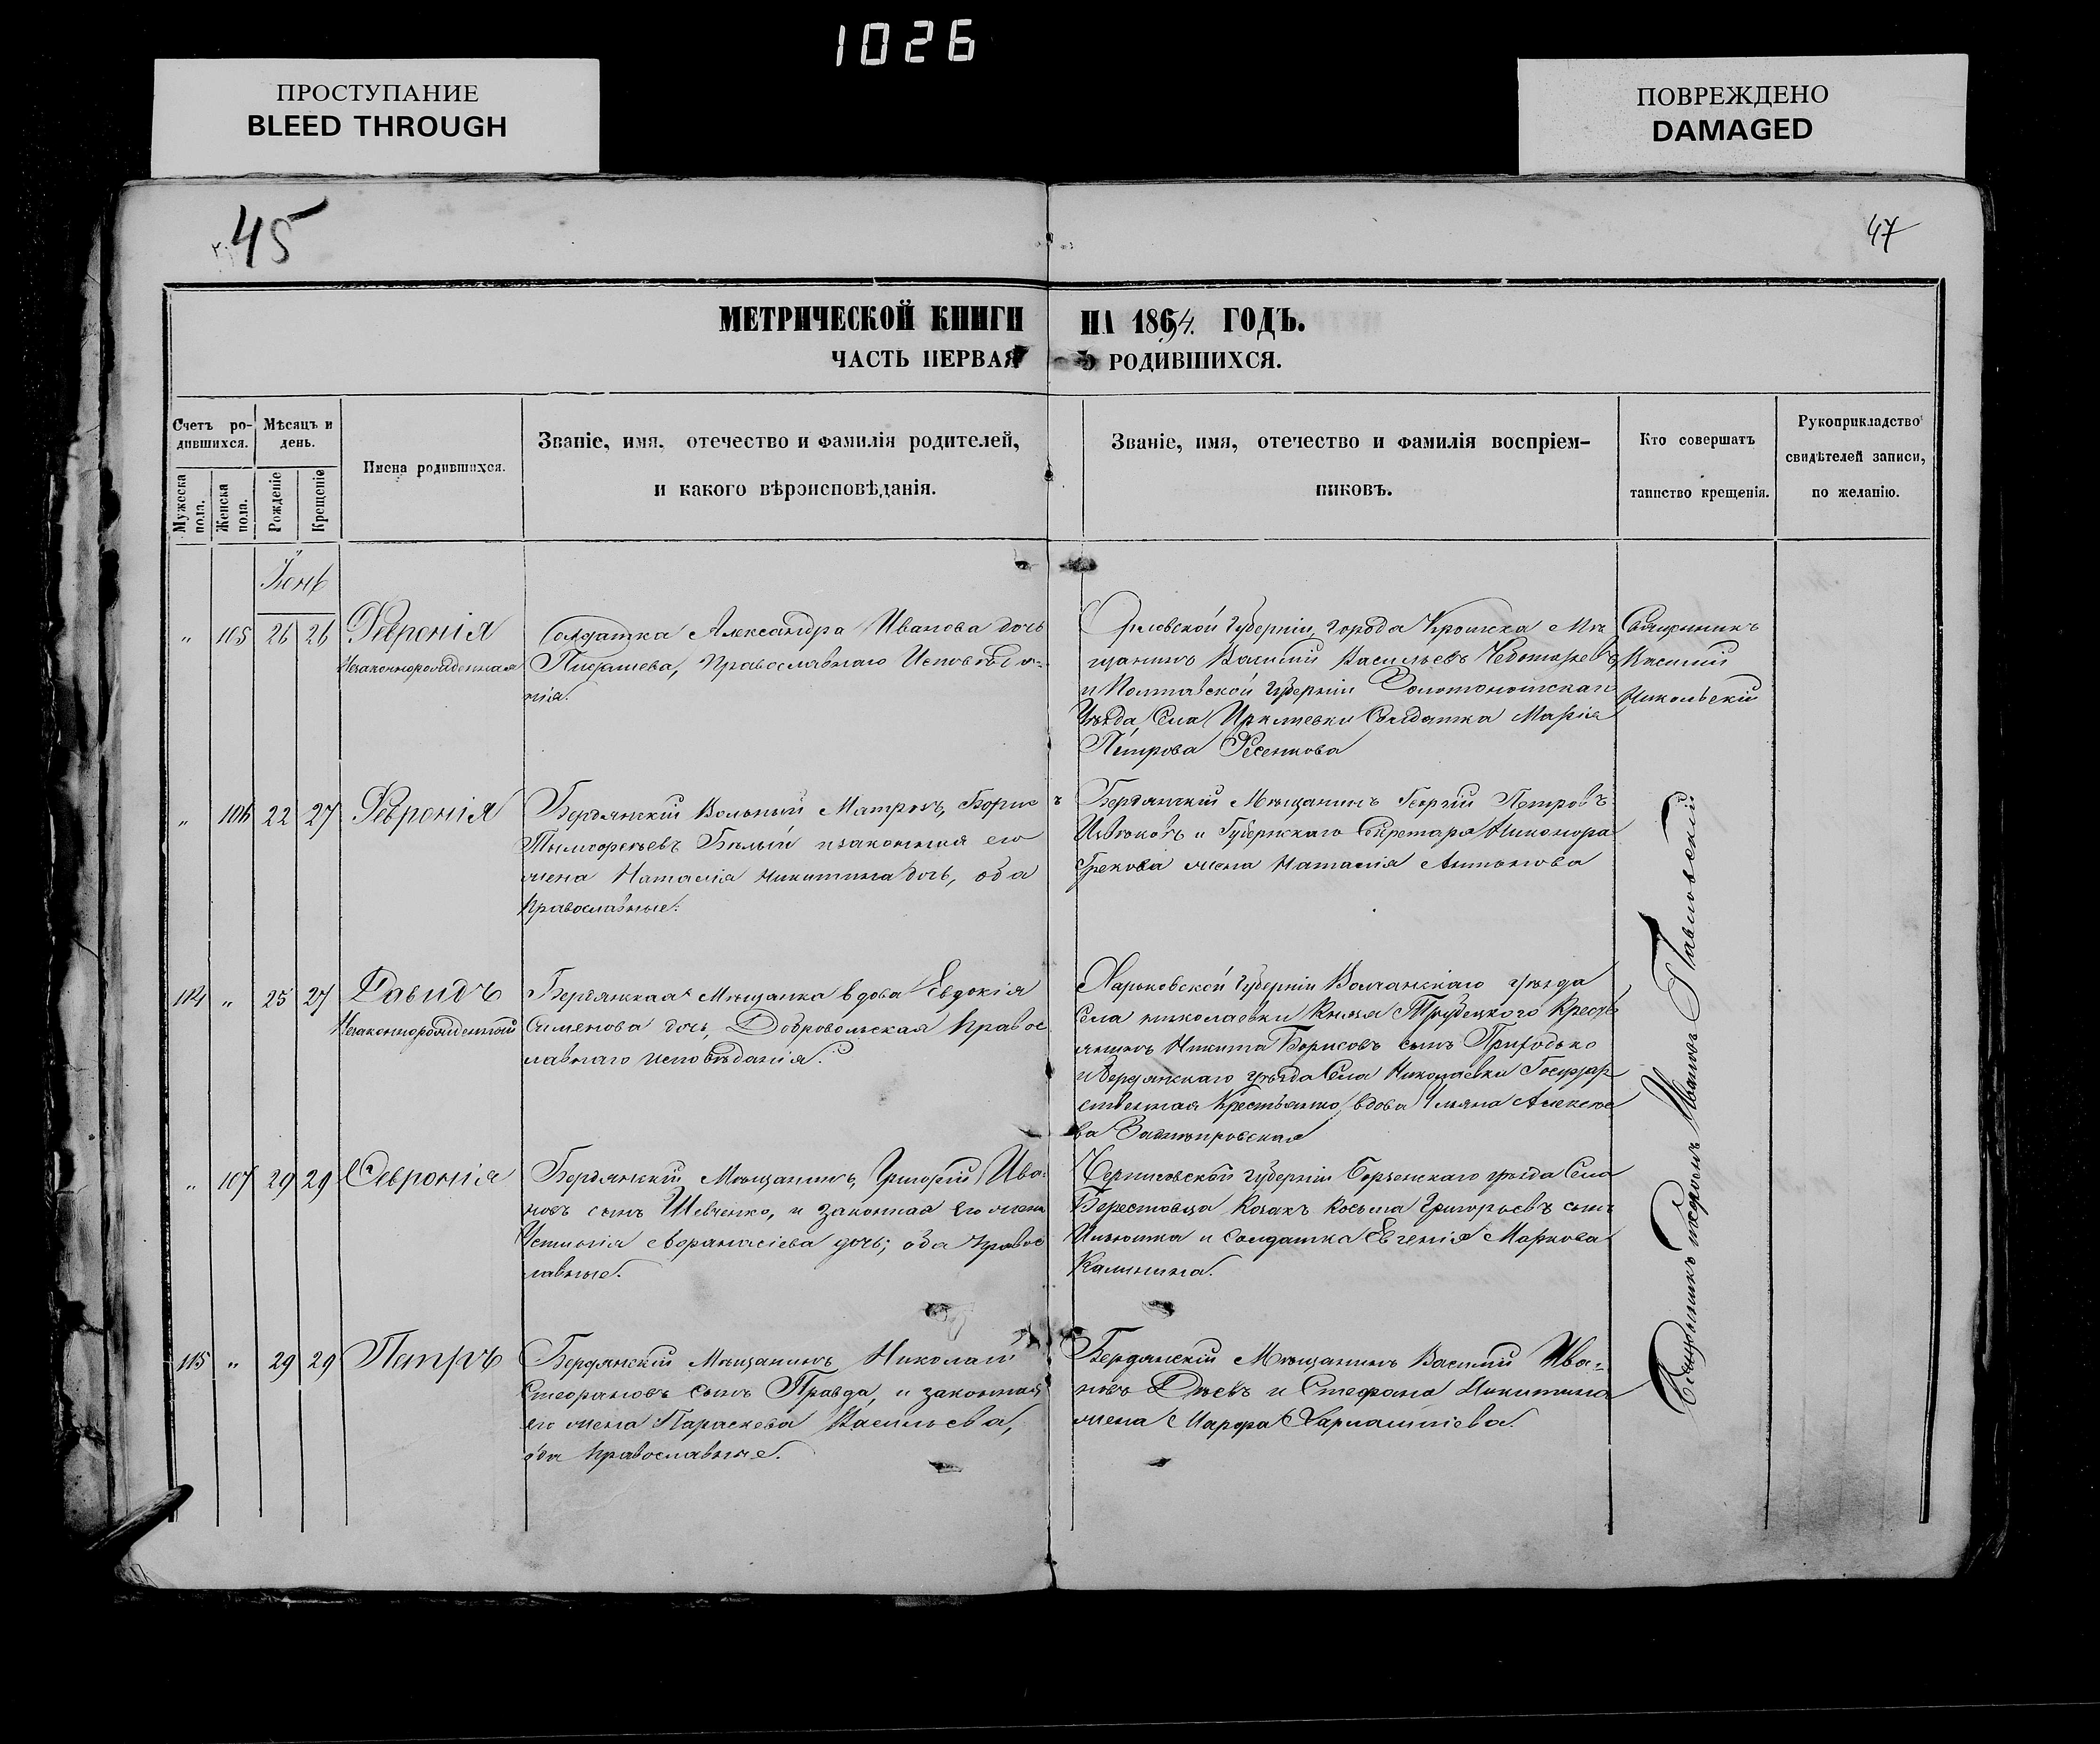 1026
ПРОСТУПАНИЕ
BLEED THROUGH
ПОВРЕЖДЕНО
DAMAGED
45
47
МЕТРИЧЕСКОЙ КНИГИ НА 1864. ГОДЪ.
ЧАСТЬ ПЕРВАЯ О РОДИВШИХСЯ.
Счетъ ро-
дившихся.
Мужеска
пола.
Женска
пола.
Мѣсяцъ и
день.
Рожденіе
Крещеніе
Имена родившихся.
Званіе, имя, отечество и фамилія родителей,
и какого вѣроисповѣданія.
Званіе, имя, отечество и фамилія воспріем-
никовъ.
Кто совершатъ
таинство крещенія.
Рукоприкладство
свидѣтелей записи,
по желанію.
Іюнь
" 105 26 26 Февронія
Незаконнорожденная
Солдатка Александра Иванова дочь
Православнаго Исповѣда-
нія.
Орловской Губерніи, города Мѣ
щанинъ Василій Васильевъ
и Полтавской Губерніи Золотоношскаго
Уѣзда Села Солдатка Марія
Петрова
Священникъ
Василій
Никольскій
" 106 22 27 Февронія
Бердянскій Вольный Матрозъ, Борисъ
Бѣлый и законная его
жена Наталія Никитина дочь, оба
православные.
Бердянскій Мѣщанинъ Георгій Петровъ
и Губернскаго Секретаря Никонора
Грекова жена Наталія Антонова
114 " 25 27 Давидъ
Незаконнорожденный
Бердянская Мѣщанка вдова Евдокія
Сименова дочь, Добровольская правос
лавнаго исповѣданія.
Харьковской Губерніи Волчанскаго уѣзда
Села Николаевки Князя Трубецкого Кресть
янинъ Никита Борисовъ сынъ Приходько
и Бердянскаго уѣзда Села Николаевки Государ
ственная Крестьянка, вдова Ульяна Алексѣе
ва Заднѣпровская
" 107 29 29 Февронія
Бердянскій Мѣщанинъ, Григорій Ива-
новъ сынъ Шевченко, и законная его жена
Устинія Афанасіева дочь; оба правос
лавные.
Черниговской губерніи Борзенскаго уѣзда Села
Берестовца Козакъ Косьма Григорьевъ сынъ
и солдатка Евгенія Маркова
Калинина.
115 " 29 29 Петръ
Бердянскій Мѣщанинъ Николай
Стефановъ сынъ Правда, и законная
его жена Параскева Васильева,
оба православные.
Бердянскій Мѣщанинъ Василій Ива-
новъ и Стефана Никитина
жена Марфа Харлампіева.
Священникъ Іоаннъ Павловскій